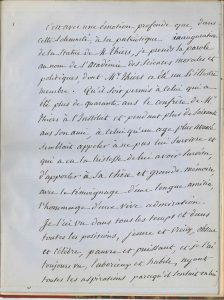 1
C'est avec une émotion profonde que, dans
cette solennité, de la patriotique inauguration
de la statue de Mr Thiers, je prends la parole
au nom de l'Académie des Sciences morales et
politiques dont Mr Thiers a été un si illustre
membre. Qu'il soit permis à celui qui a
été plus de quarante ans le confrère de Mr
Thiers à l'Institut et pendant plus de soixante
ans son ami, à celui qu'un âge plus avancé
semblait appeler à ne pas lui survivre et
qui a eu la tristesse de lui avoir survécu
d'apporter à sa chère et grande mémoire,
avec le témoignage d'une longue amitié,
l'hommage d'une vive admiration.
Je l'ai vu dans tous les temps et dans
toutes les positions, jeune et vieux, obscur
et célèbre, pauvre et puissant, et je l'ai
toujours vu, laborieux et habile, ayant
toutes les aspirations parce qu'il sentait en lui